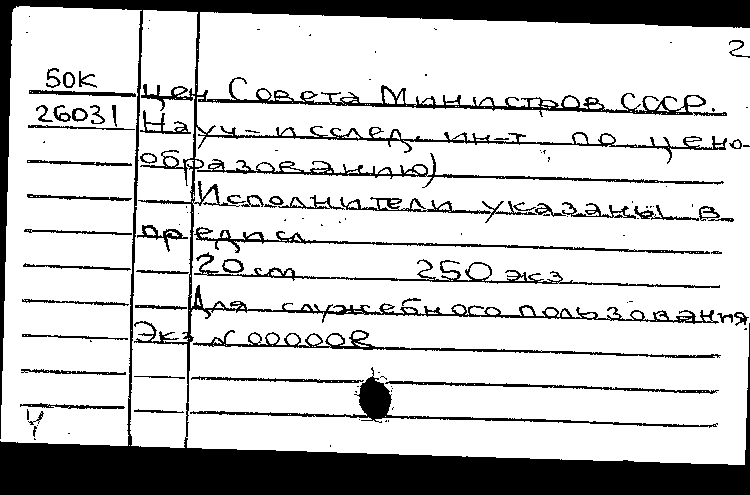 2
50К цен Совета Министров СССР.
26031 Науч-исслед. ин-т по цено-
образованию)
Исполнители указаны в
предисл.
20 см 250 экз.
Для служебного пользования
Экз N 000008
Ч